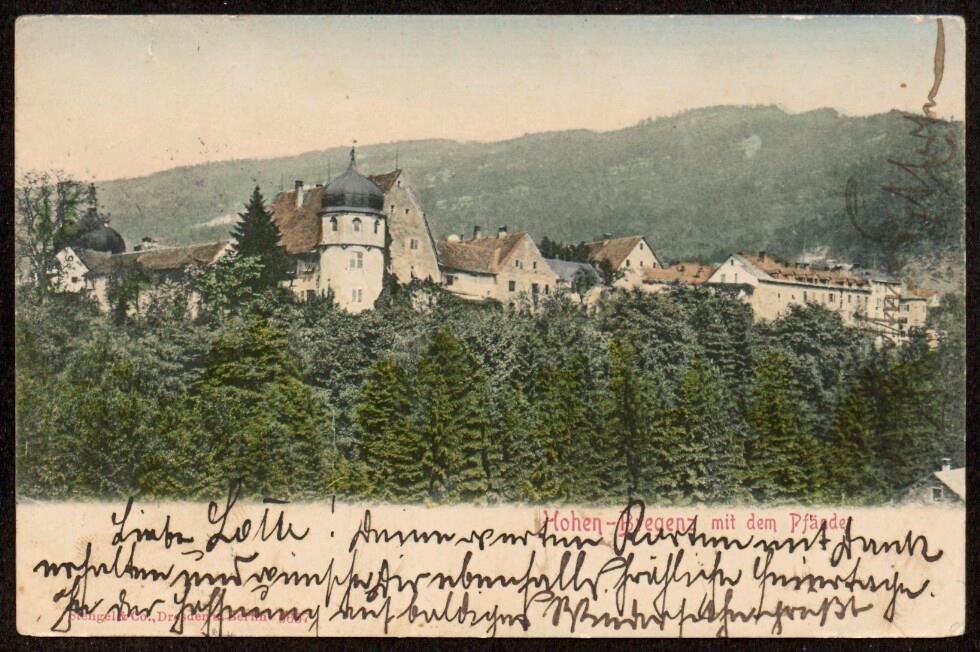 Hohen-Bregenz mit dem Pfänder
Liebe Lotte! Deine werten Karten mit Dank
erhalten und wünsche Dir ebenfalls fröhliche Feiertage.
In der Hoffnung auf baldiges Wiedersehen grüßt
Stengel & Co., Dresden u. Berlin